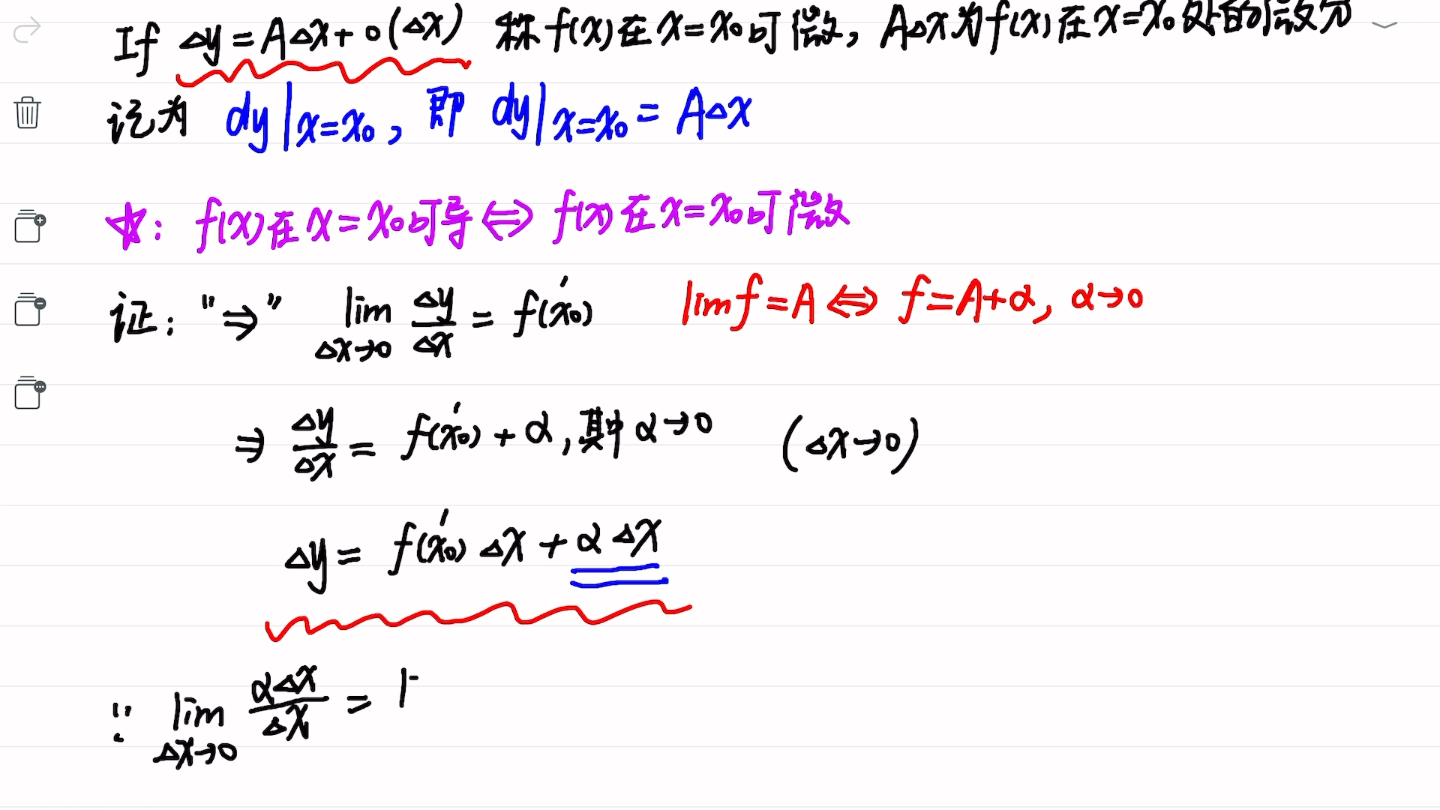 If Δy=AΔx+o(Δx) 称f(x)在x=x₀可微, AΔx为f(x)在x=x₀处的微分
记为 dy|x=x₀, 即 dy|x=x₀ = AΔx
☆: f(x)在x=x₀可导⇔f(x)在x=x₀可微
证: "⇒" lim Δx→0 Δy/Δx = f'(x₀) lim f=A⇔f=A+α, α→0
⇒ Δy/Δx = f'(x₀)+α, 其中α→0 (Δx→0)
Δy= f'(x₀)Δx+αΔx
∵ lim Δx→0 αΔx/Δx =